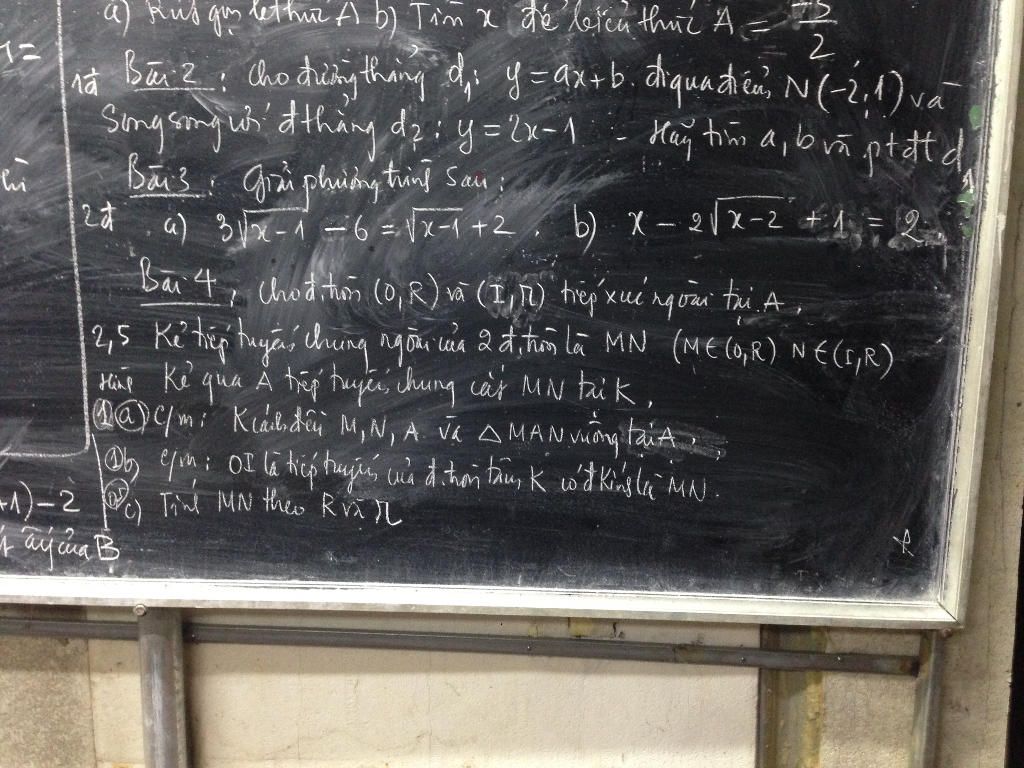 a) Rút gọn b thức A b) Tìm x để biểu thức A = -3/2
1đ Bài 2 : Cho đường thẳng d₁: y = ax+b. đi qua điểm N(-2;1) và
Song song với đ thẳng d₂: y = 2x-1 - Hãy tìm a, b và ptđt d₁
Bài 3 : Giải phương trình sau:
2đ a) 3√(x-1) - 6 = √(x-1) + 2. b) x - 2√(x-2) + 1 = 2
Bài 4 : Cho đ.tròn (O,R) và (I,r) tiếp xúc ngoài tại A.
2,5 Kẻ tiếp tuyến chung ngoài của 2 đ.tròn là MN (M∈(O,R) N∈(I,R)
Hình Kẻ qua A tiếp tuyến chung cắt MN tại K.
1 a) C/m: K cách đều M, N, A và △MAN vuông tại A.
1 b) c/m: OI là tiếp tuyến của đ.tròn tâm K có đ kính là MN.
0,5 c) Tính MN theo R và r
+1) - 2
của B